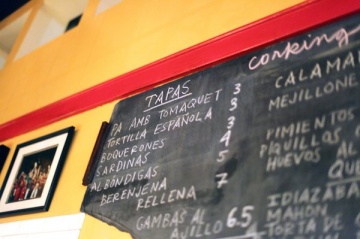 TAPAS
PA AMB TOMAQUET 3
TORTILLA ESPAÑOLA 3
BOQUERONES 4
SARDINAS 5
ALBÓNDIGAS
BERENJENA 7
RELLENA
GAMBAS AL
AJILLO 6.5
corking
CALAMAR
MEJILLONE
PIMIENTOS
PIQUILLOS
HUEVOS AL
QU
IDIAZABA
MAHON
TORTA DE